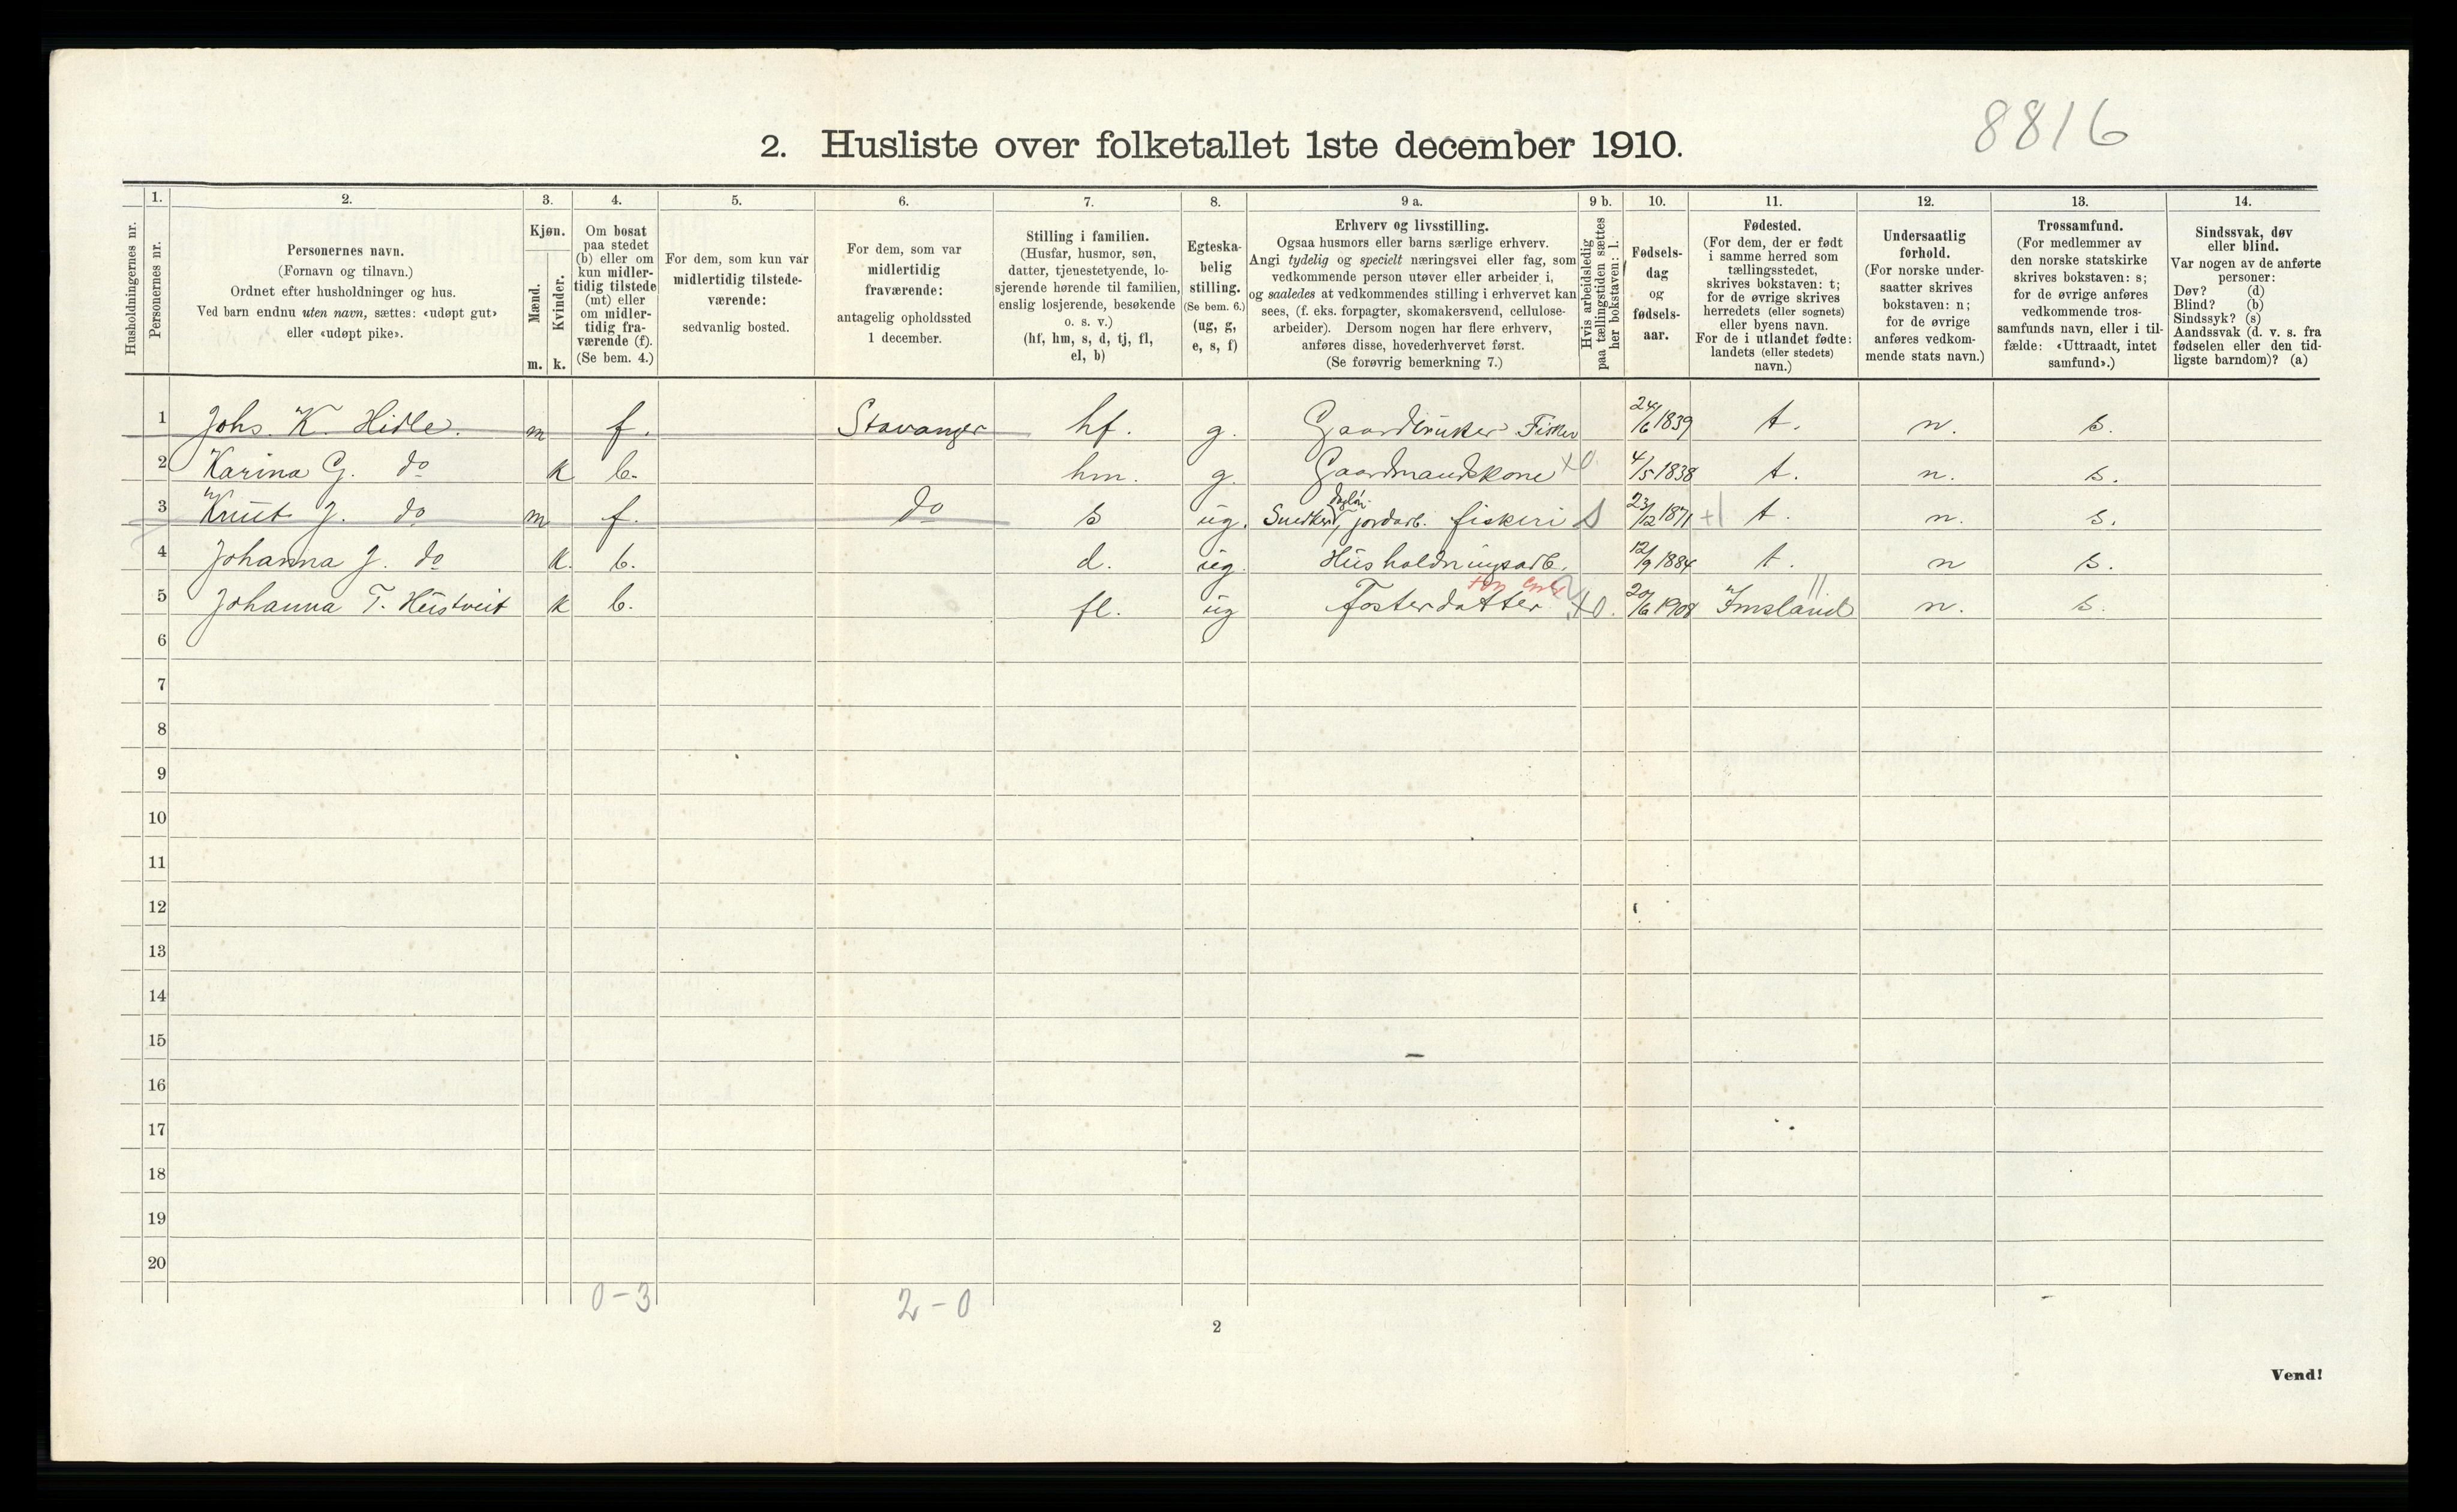 8816
2. Husliste over folketallet 1ste december 1910.
Husholdningernes nr.
1.
Personernes nr.
2.
Personernes navn.
(Fornavn og tilnavn.)
Ordnet efter husholdninger og hus.
Ved barn endnu uten navn, sættes: «udøpt gut»
eller «udøpt pike».
3.
Kjøn.
Mænd.
m.
Kvinder.
k.
4.
Om bosat
paa stedet
(b) eller om
kun midler-
tidig tilstede
(mt) eller
om midler-
tidig fra-
værende (f).
(Se bem. 4.)
5.
For dem, som kun var
midlertidig tilstede-
værende:
sedvanlig bosted.
6.
For dem, som var
midlertidig
fraværende:
antagelig opholdssted
1 december.
7.
Stilling i familien.
(Husfar, husmor, søn,
datter, tjenestetyende, lo-
sjerende hørende til familien,
enslig losjerende, besøkende
o. s. v.)
(hf, hm, s, d, tj, fl,
el, b)
8.
Egteska-
belig
stilling.
(Se bem. 6.)
(ug, g,
e, s, f)
9 a.
Erhverv og livsstilling.
Ogsaa husmors eller barns særlige erhverv.
Angi tydelig og specielt næringsvei eller fag, som
vedkommende person utøver eller arbeider i,
og saaledes at vedkommendes stilling i erhvervet kan
sees, (f. eks. forpagter, skomakersvend, cellulose-
arbeider). Dersom nogen har flere erhverv,
anføres disse, hovederhvervet først.
(Se forøvrig bemerkning 7.)
9 b.
Hvis arbeidsledig
paa tællingstiden sættes
her bokstaven: l.
10.
Fødsels-
dag
og
fødsels-
aar.
11.
Fødested.
(For dem, der er født
i samme herred som
tællingsstedet,
skrives bokstaven: t;
for de øvrige skrives
herredets (eller sognets)
eller byens navn.
For de i utlandet fødte:
landets (eller stedets)
navn.)
12.
Undersaatlig
forhold.
(For norske under-
saatter skrives
bokstaven: n;
for de øvrige
anføres vedkom-
mende stats navn.)
13.
Trossamfund.
(For medlemmer av
den norske statskirke
skrives bokstaven: s;
for de øvrige anføres
vedkommende tros-
samfunds navn, eller i til-
fælde: «Uttraadt, intet
samfund».)
14.
Sindssvak, døv
eller blind.
Var nogen av de anførte
personer:
Døv? (d)
Blind? (b)
Sindssyk? (s)
Aandssvak (d. v. s. fra
fødselen eller den tid-
ligste barndom)? (a)
1 Johs. K. Hidle. m f. Stavanger hf. g. Gaardbruker Fisker 24/6 1839 t. n. s.
2 Karina G. do k b. hm. g. Gaardmandskone +0. 4/5 1838 t. n. s.
3 Knut J. do m f. do s ug. Snedker, dagløn jordarb. fiskeri S 23/12 1871 +1 t. n. s.
4 Johanna J. do k. b. d. ug. Husholdningsarb. 12/9 1884 t. n s.
5 Johanna T. Hustveit k b. fl. ug Fosterdatter +0. 20/6 1908 Imsland n. s.
6
7
8
9
10
11
12
13
14
15
16
17
18
19
20
0-3
2-0
2
Vend!